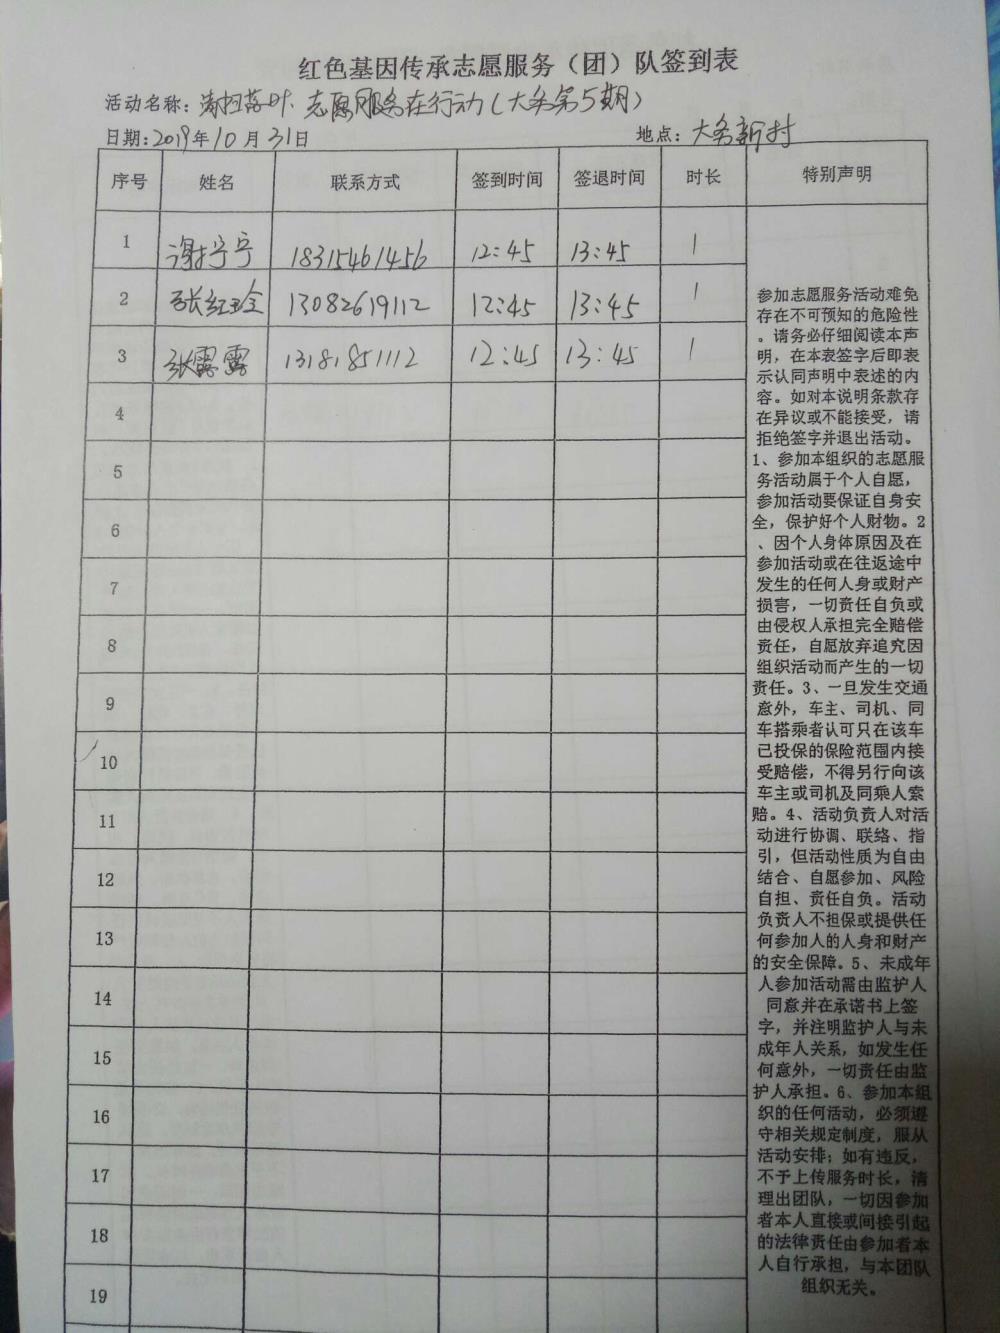 红色基因传承志愿服务（团）队签到表
活动名称：清扫落叶.志愿服务在行动(大务第5期)
日期：2019年10月31日 地点：大务新村
序号 姓名 联系方式 签到时间 签退时间 时长 特别声明
1 谢宁宁 18315461456 12:45 13:45 1
2 张红玲 13082619112 12:45 13:45 1
3 张露露 13181851112 12:45 13:45 1
4
5
6
7
8
9
10
11
12
13
14
15
16
17
18
19
参加志愿服务活动难免
存在不可预知的危险性
。请务必仔细阅读本声
明，在本表签字后即表
示认同声明中表述的内
容。如对本说明条款存
在异议或不能接受，请
拒绝签字并退出活动。
1、参加本组织的志愿服
务活动属于个人自愿，
参加活动要保证自身安
全，保护好个人财物。2
、因个人身体原因及在
参加活动或在往返途中
发生的任何人身或财产
损害，一切责任自负或
由侵权人承担完全赔偿
责任，自愿放弃追究因
组织活动而产生的一切
责任。3、一旦发生交通
意外，车主、司机、同
车搭乘者认可只在该车
已投保的保险范围内接
受赔偿，不得另行向该
车主或司机及同乘人索
赔。4、活动负责人对活
动进行协调、联络、指
引，但活动性质为自由
结合、自愿参加、风险
自担、责任自负。活动
负责人不担保或提供任
何参加人的人身和财产
的安全保障。5、未成年
人参加活动需由监护人
同意并在承诺书上签
字，并注明监护人与未
成年人关系，如发生任
何意外，一切责任由监
护人承担。6、参加本组
织的任何活动，必须遵
守相关规定制度，服从
活动安排；如有违反，
不予上传服务时长，清
理出团队，一切因参加
者本人直接或间接引起
的法律责任由参加者本
人自行承担，与本团队
组织无关。